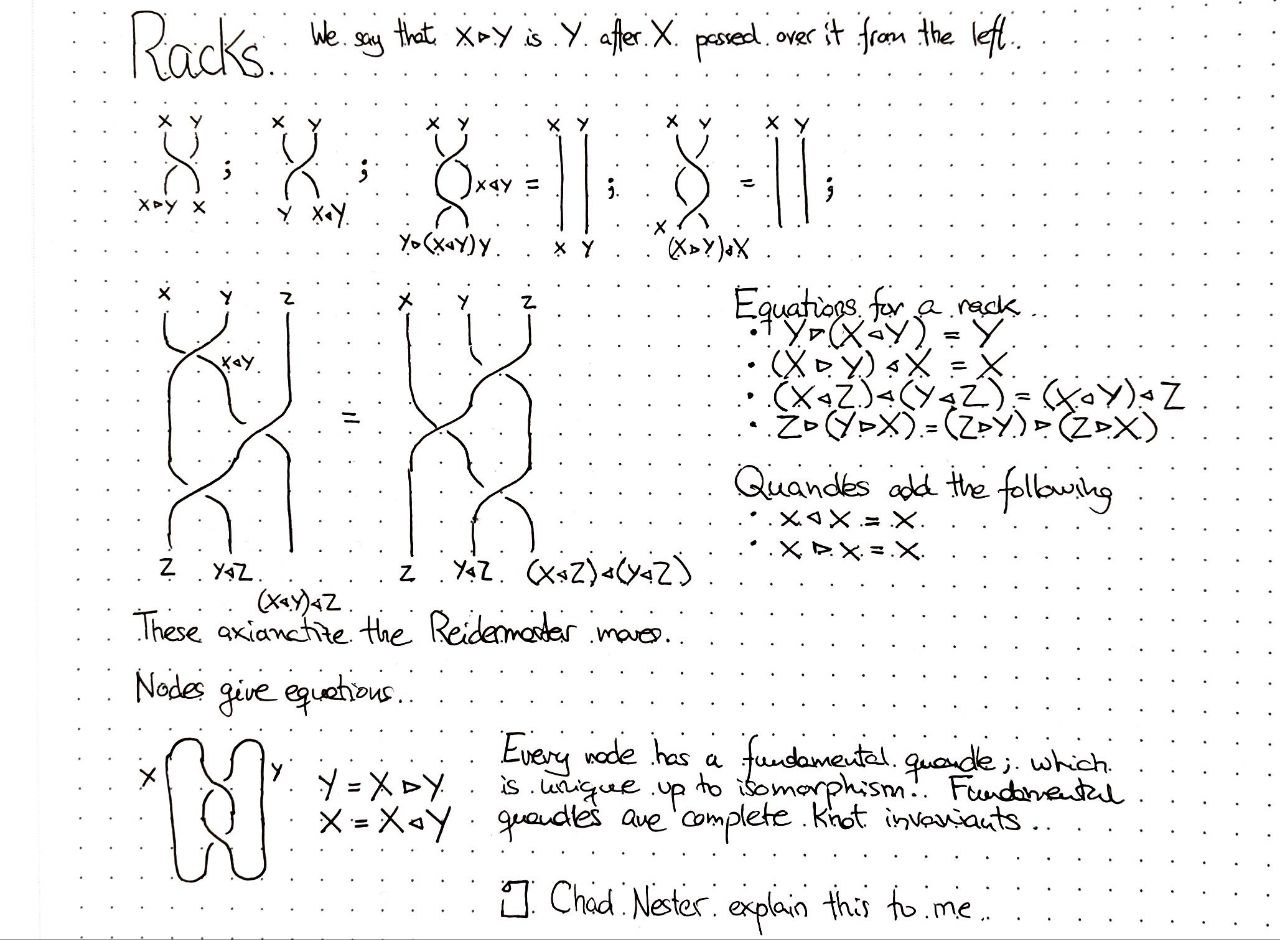 Racks.
We say that X▹Y is Y after X passed over it from the left.
X Y ; X Y ; X Y = X Y ; X Y = X Y ;
X◃Y
X▹Y X Y X◃Y X
Y▹(X◃Y) Y X Y (X▹Y)◃X
X Y Z X Y Z
X◃Y
=
Z Y◃Z Z Y◃Z (X◃Z)◃(Y◃Z)
(X◃Y)◃Z
Equations for a rack
• Y▹(X◃Y) = Y
• (X▹Y)◃X = X
• (X◃Z)◃(Y◃Z) = (X◃Y)◃Z
• Z▹(Y▹X) = (Z▹Y)▹(Z▹X)
Quandles add the following
• X◃X = X
• X▹X = X
These the moves.
Nodes give equations.
X Y
Y = X▹Y
X = X◃Y
Every node has a fundamental quandle; which
is unique up to isomorphism. Fundamental
quandles are complete knot invariants.
Chad Nester explain this to me.